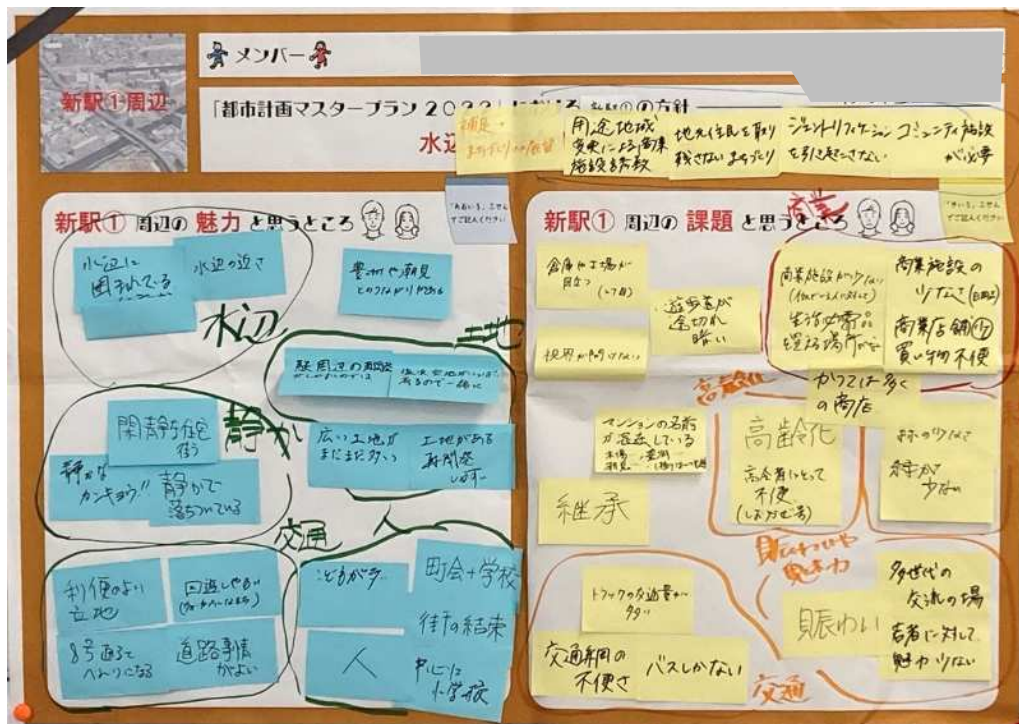 新駅①周辺
メンバー
「都市計画マスタープラン2022」における 新駅①の方針
水辺
補足・
まちづくりの
用途地域
変更による商業
施設誘致
地元住民を取り
残さないまちづくり
ジェントリフィケーション
を引き起こさない
コミュニティ施設
が必要
新駅① 周辺の 魅力 と思うところ
「あおいろ」ふせん
でご記入ください
水辺に
囲まれている
水辺の近さ
水辺
豊洲や潮見
とのつながりがある
土地
駅周辺の再開発
閑静な住宅
街
静かな
カンキョウ!!
静かで
落ちついている
静か
広い土地が
まだまだ多い
土地がある
再開発
しやすい
交通
利便のよい
立地
回遊しやすい
8号通るで
べんりになる
道路事情
がよい
人
こどもが多い
人
町会+学校
街の結束
中心に
小学校
新駅① 周辺の 課題 と思うところ
「きいろ」ふせん
でご記入ください
商業
倉庫や工場が
目立つ
遊歩道が
途切れ
暗い
視界が開けない
商業施設が少ない
生活必需品
を買える場所がない
商業施設の
少なさ
商業店舗少
買い物不便
かつては多く
の商店
高齢化
マンションの名前
が混在している
高齢化
高齢者にとって
不便
緑の少なさ
緑が
少ない
継承
賑わいや
魅力
トラックの交通量が
多い
交通網の
不便さ
バスしかない
交通
賑わい
多世代の
交流の場
若者に対して
魅力少ない